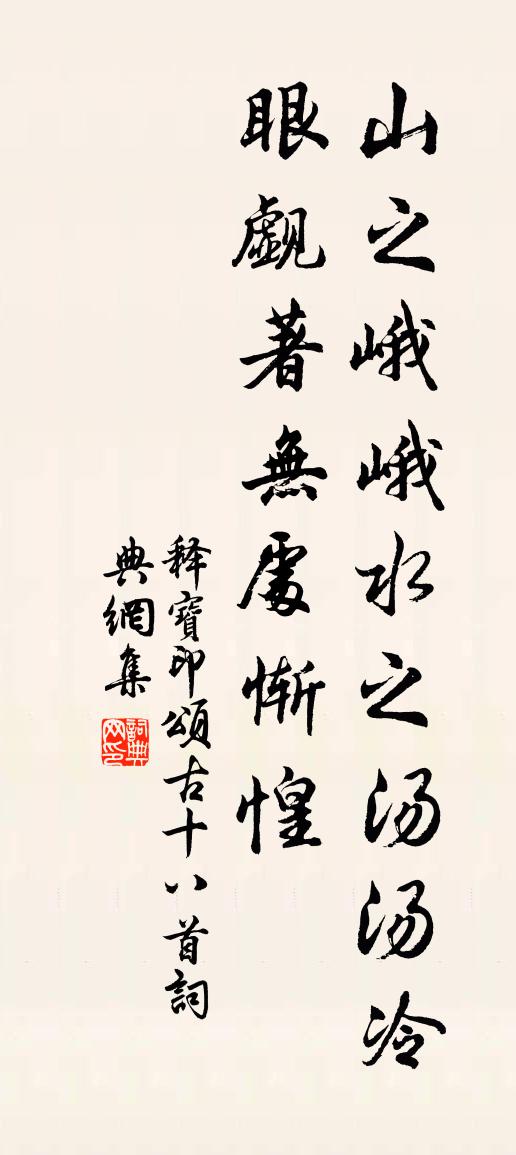 山之峨峨水之汤汤冷
眼覷著無處慚惶
释寶印頌古十八首詞
典網集
詞典
网印